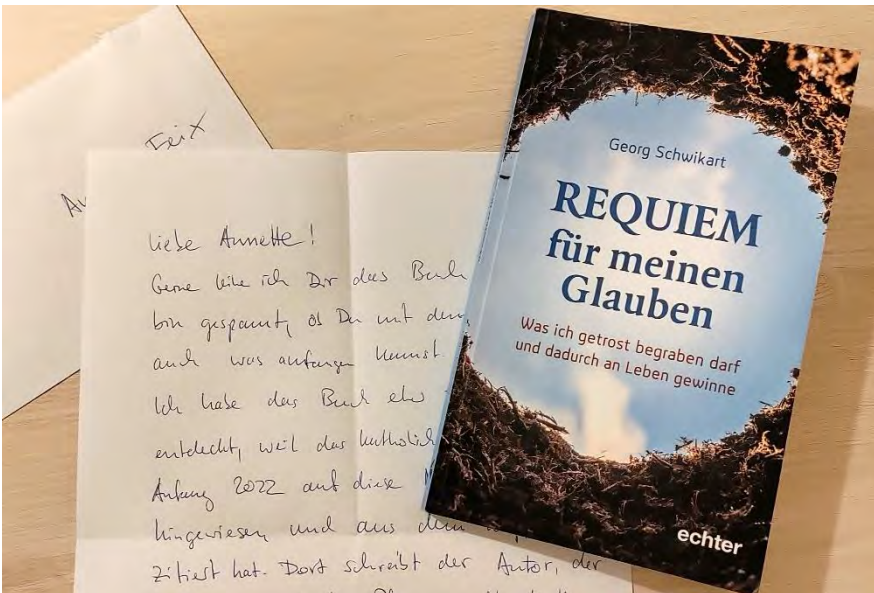 Feix
Liebe Annette!
Gerne leihe ich Dir das Buch
bin gespannt, ob Du mit dem
auch was anfangen kannst.
Ich habe das Buch eher
entdeckt, weil das katholisch
Anfang 2022 auf diese
hingewiesen und aus dem
zitiert hat. Dort schreibt der Autor, der
Georg Schwikart
REQUIEM
für meinen
Glauben
Was ich getrost begraben darf
und dadurch an Leben gewinne
echter